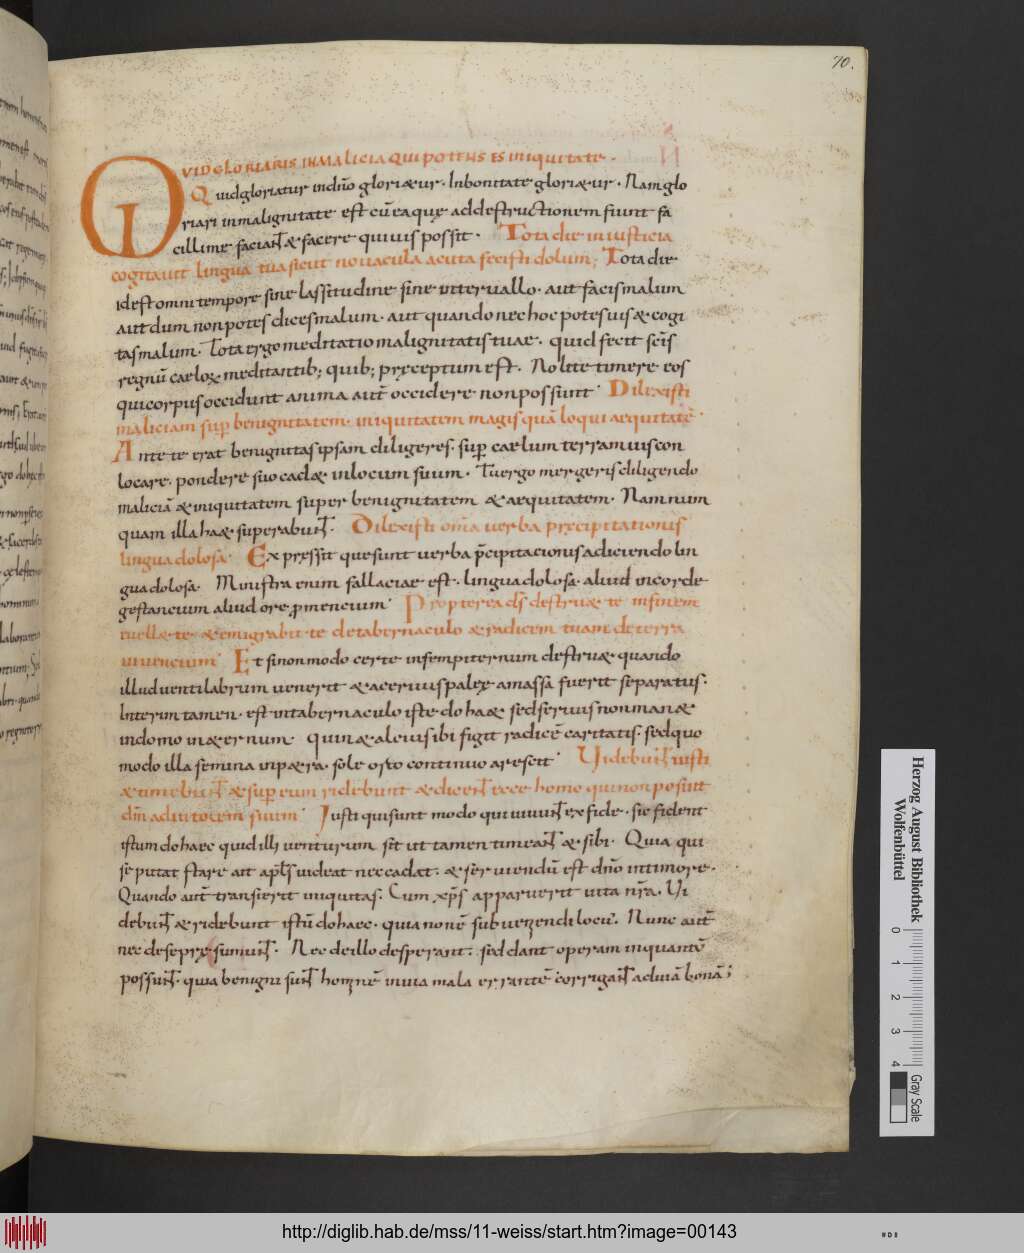 70.
QVID GLORIARIS IN MALICIA QUI POTENS ES INIQUITATE.
Quid gloriatur in dn̄o gloriꝫur. In bonitate gloriꝫur. Nam glo
riari in malignitate est cū ea quę ad destructionem fiunt fa
cillime faciat & facere quiuis possit. Tota die iniusticia
cogitauit lingua tua sicut nouacula acuta fecisti dolum; Tota die.
id est omni tempore sine lassitudine sine interuallo. aut facis malum
aut dum non potes dices malum. aut quando nec hoc potes uis & cogi
tas malum. Tota ergo meditatio malignitatis tuae. quid fecit sc̄is
regnū caeloꝝ meditantib; quib; pręceptum est. Nolite timere eos
qui corpus occidunt anima aut̄ occidere non possunt. Dilexisti
maliciam sup̱ benignitatem. iniquitatem magis quā loqui aequitatē.
Ante te erat benignitas ipsam diligeres. sup̱ caelum terram uis con
locare. pondere suo cad& in locum suum. Tu ergo mergeris diligendo
maliciā & iniquitatem super benignitatem & aequitatem. Nam num
quam illa h& superabunt̄. Dilexisti om̄ia uerba pręcipitationis
lingua dolosa. Expressit que sunt uerba p̄cipitacionis adiciendo lin
gua dolosa. Ministra enim fallaciae est. lingua dolosa. aliud in corde
gestancium aliud ore ꝓmencium. Propterea dś destru& te in finem
euell& te. & emigrabit te de tabernaculo & radicem tuam de terra
uiuencium. Et si non modo certe in sempiternum destru&. quando
illud uentilabrum uenerit & aceruus palęę a massa fuerit separatus.
Interim tamen. est in tabernaculo iste doh&. sed seruus non man&
in domo in &ernum. quin & alcius ibi figit radicē caritatis. sed quo
modo illa semina in p&ra. sole orto continuo arescit. Uidebunt̄ iusti
& timebunt̄ & sup̱ eum ridebunt & dicent̄ ecce homo qui non posuit
dm̄ adiutorem suum. Iusti qui sunt modo qui uiuunt̄ ex fide. sic fident
istum dohaec quid illi uenturum sit ut tamen timeant̄ & sibi. Quia qui
se putat stare ait apł̄s uideat nec cadat. & seruiendū est dn̄o in timore.
Quando aut̄ transierit iniquitas. Cum xp̄s apparuerit uita nr̄a. Ui
debunt̄ & ridebunt istū dohaec. quia non ē subuerendi locū. Nunc aut̄
nec de se pręsumunt̄. Nec de illo desperant. sed dant operam inquantū
possunt̄. quia benigni sunt̄ hominē in uia mala errantē corrigant̄ ad uiā bonā;
Herzog August Bibliothek
Wolfenbüttel
0 1 2 3 4
Gray Scale
http://diglib.hab.de/mss/11-weiss/start.htm?image=00143